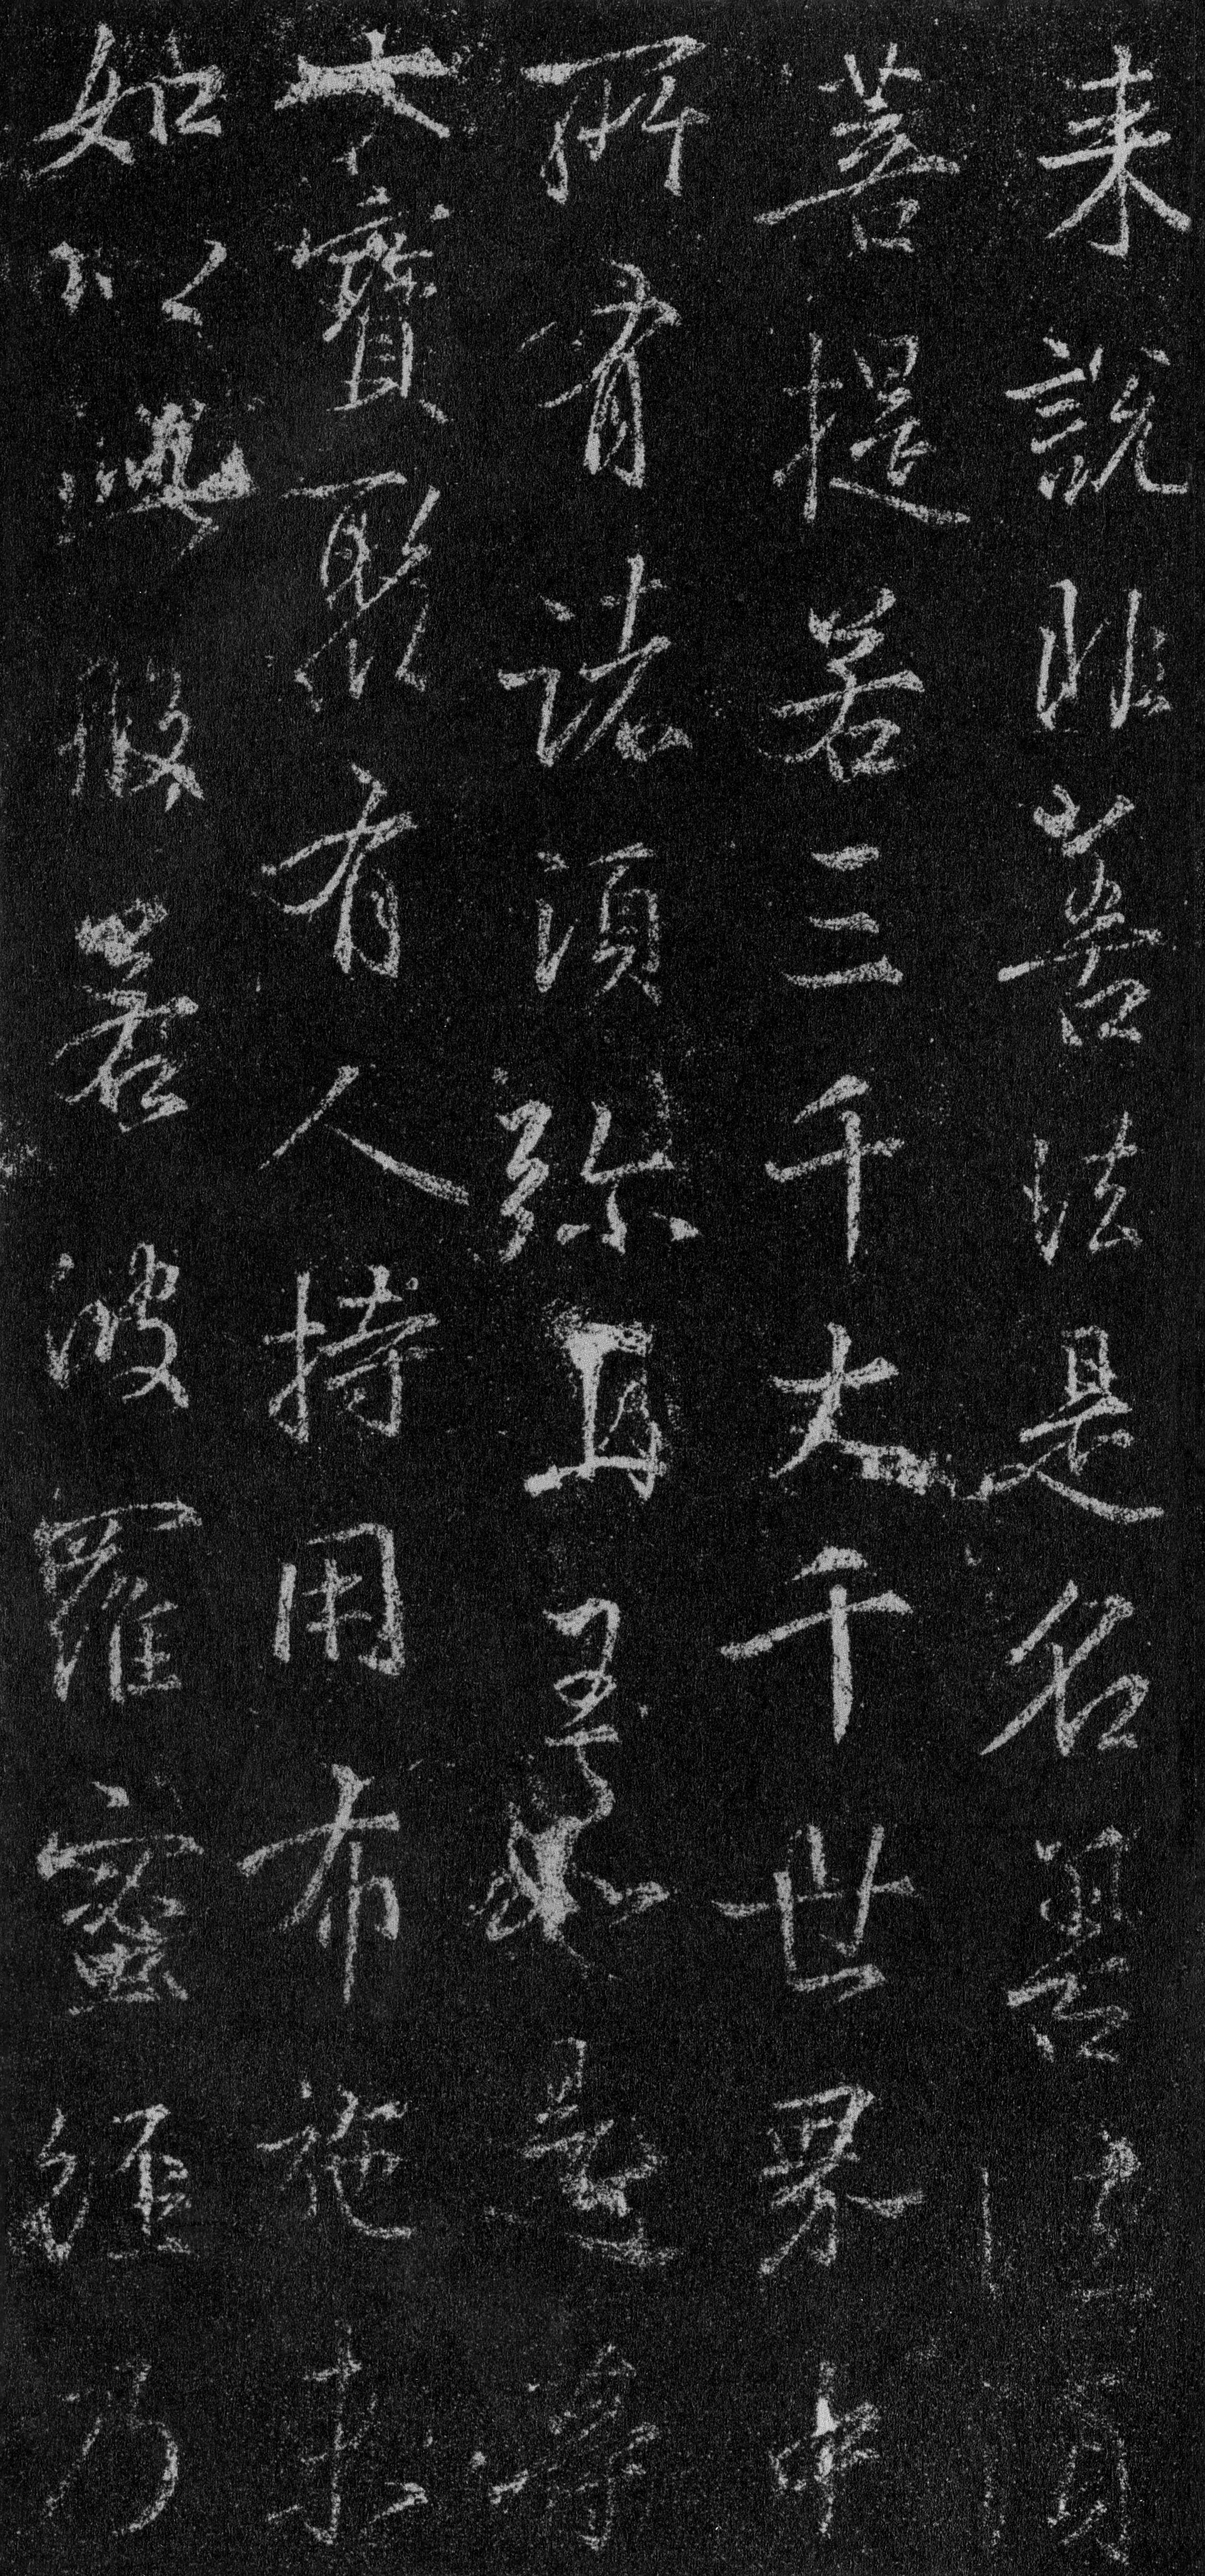 来說非善法是名善
菩提若三千大千世界中
所有諸須弥山王如是等
七寶聚有人持用布施
如以此般若波羅蜜經乃